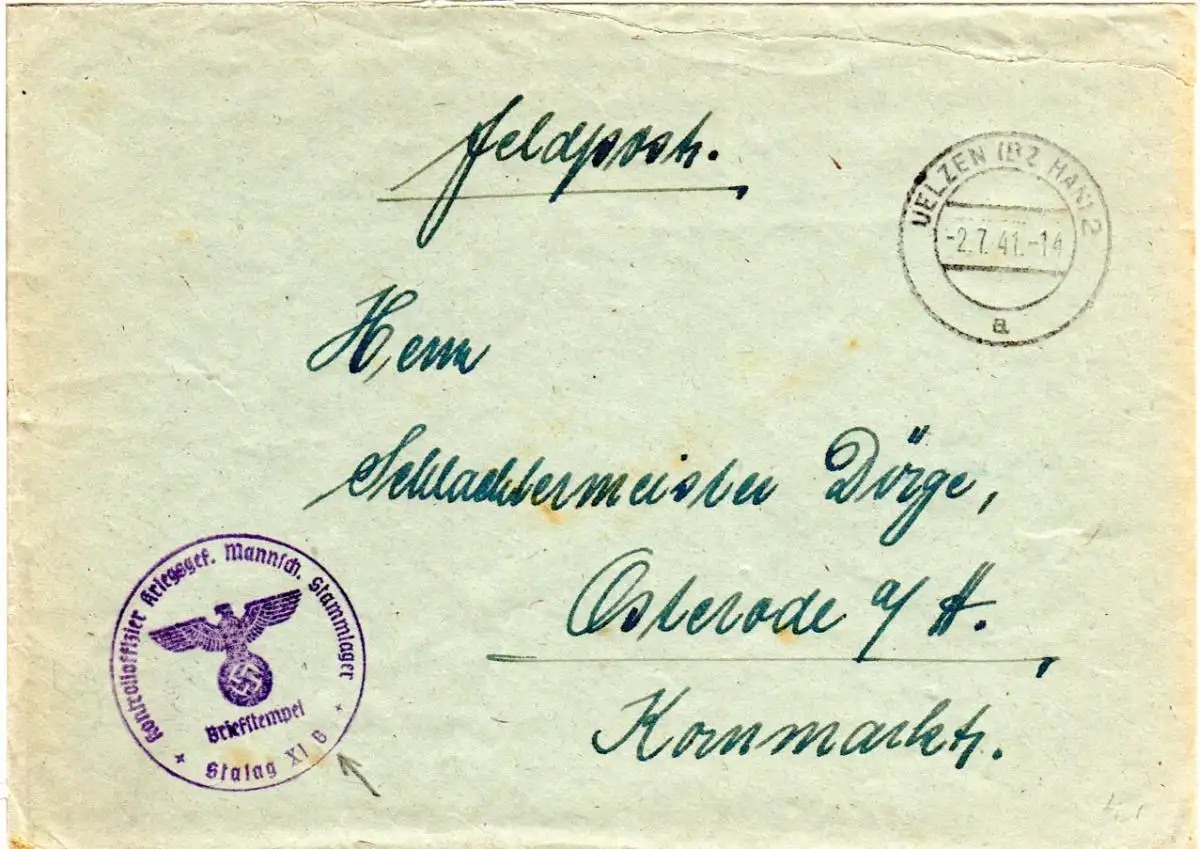 Feldpost.
UELZEN (BZ. HAN) 2
-2.7.41.-14
a
Herrn
Schlachtermeister Dörge,
Osterode a/H.
Kornmarkt.
Kontrolloffizier Kriegsgef. Mannsch. Stammlager
Briefstempel
Stalag XI B